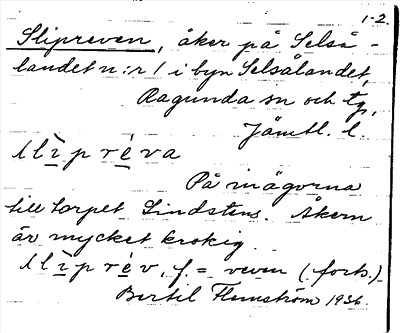 1-2.
Slipreven, åker på Selså-
landet n:r 1 i byn Selsålandet,
Ragunda sn och tg,
Jämtl. l.
slìpréva
På inägorna
till torpet Lindstens. Åkern
är mycket krokig.
slìprév, f. = reven (forts.)
Bertil Flemström 1936.